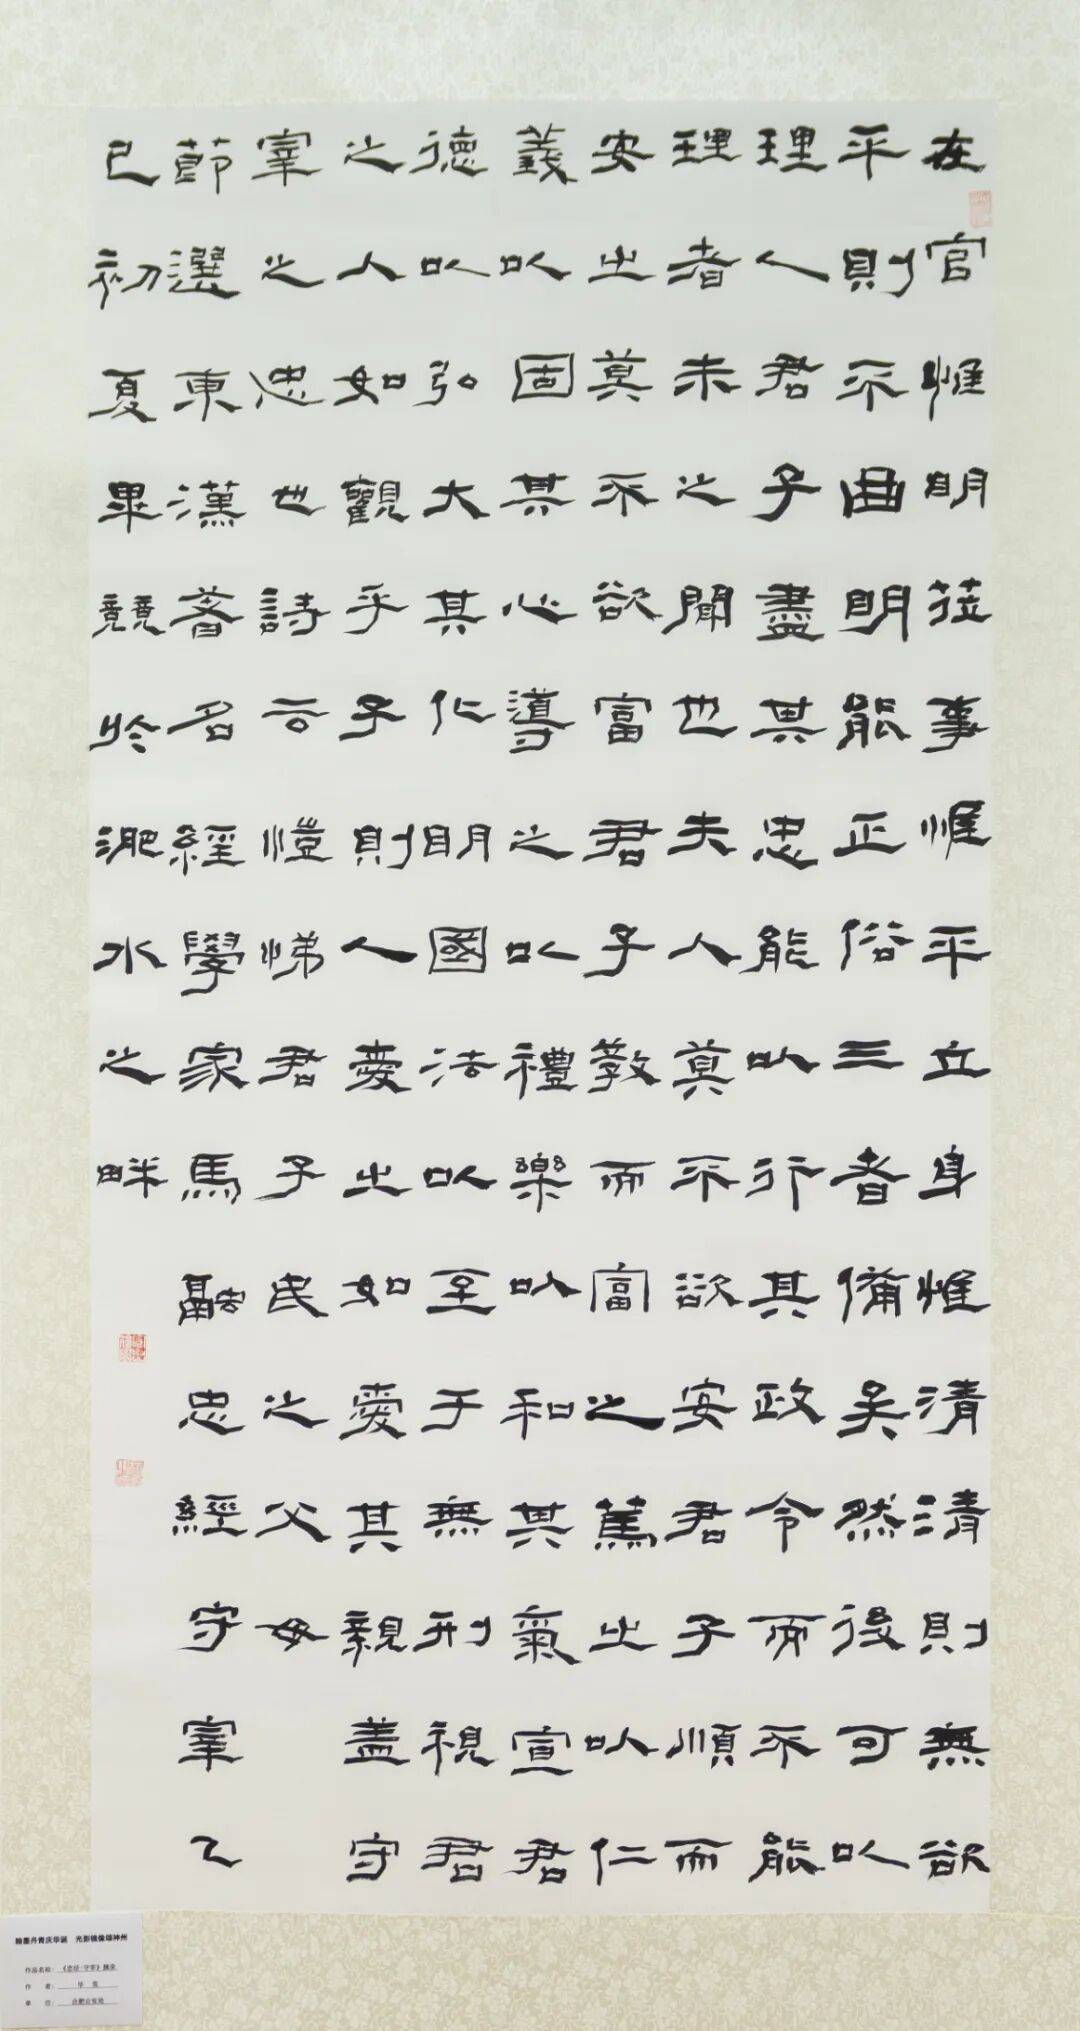 在官惟明莅事惟平立身惟清清則無欲
平則不曲明能正俗三者備矣然後可以
理人君子盡其忠能以行其政令而不能
理者未之聞也夫人莫不欲安君子順而
安之莫不欲富君子教而富之篤之以仁
義以固其心導之以禮樂以和其氣宣君
德以弘大其化明國法以至于無刑視君
之人如觀乎子則人愛之如愛其親盖守
宰之忠也詩云愷悌君子民之父母
節選東漢著名經學家馬融忠經守宰乙
巳初夏畢競於淝水之畔
翰墨丹青庆华诞 光影镜像颂神州
作品名称:《忠经·守宰》摘录
作 者: 毕 竞
单 位: 合肥公安处